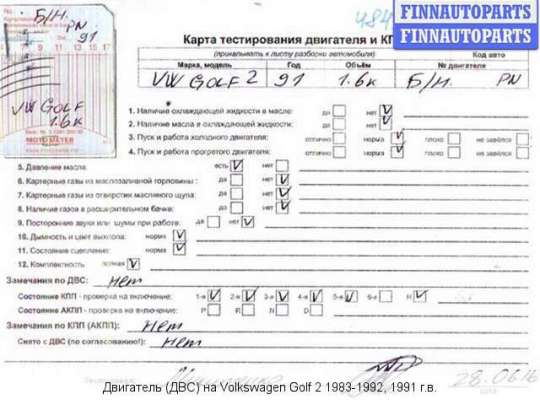 Б/Н.
PN
91
9 11 13 15 17
VW GOLF
1.6к
MOTOMETER
484
FINNAUTOPARTS
FINNAUTOPARTS
Карта тестирования двигателя и КП
(прикалывать к листу разборки автомобиля)
Код авто
Марка, модель Год Объём № двигателя
VW GOLF 2 91 1.6к Б/Н. PN
1. Наличие охлаждающей жидкости в масле: да нет V
2. Наличие масла в охлаждающей жидкости: да нет V
3. Пуск и работа холодного двигателя: отлично норма V плохо не завёлся
4. Пуск и работа прогретого двигателя: отлично норма V плохо не завёлся
5. Давление масла: есть V нет
6. Картерные газы из маслозаливной горловины: да нет V
7. Картерные газы из отверстия масляного щупа: да нет V
8. Наличие газов в расширительном бачке: да нет V
9. Посторонние звуки или шумы при работе: да нет V
10. Дымность и цвет выхлопа: норма V
11. Состояние сцепление: норма V
12. Комплектность: полная V
Замечания по ДВС: нет
Состояние КПП - проверка на включение: 1-я V 2-я V 3-я V 4-я V 5-я V 6-я R V
Состояние АКПП - проверка на включение: P R N D
Замечания по КПП (АКПП): нет
Снято с ДВС (по согласованию!): нет
28.06.16
Двигатель (ДВС) на Volkswagen Golf 2 1983-1992, 1991 г.в.